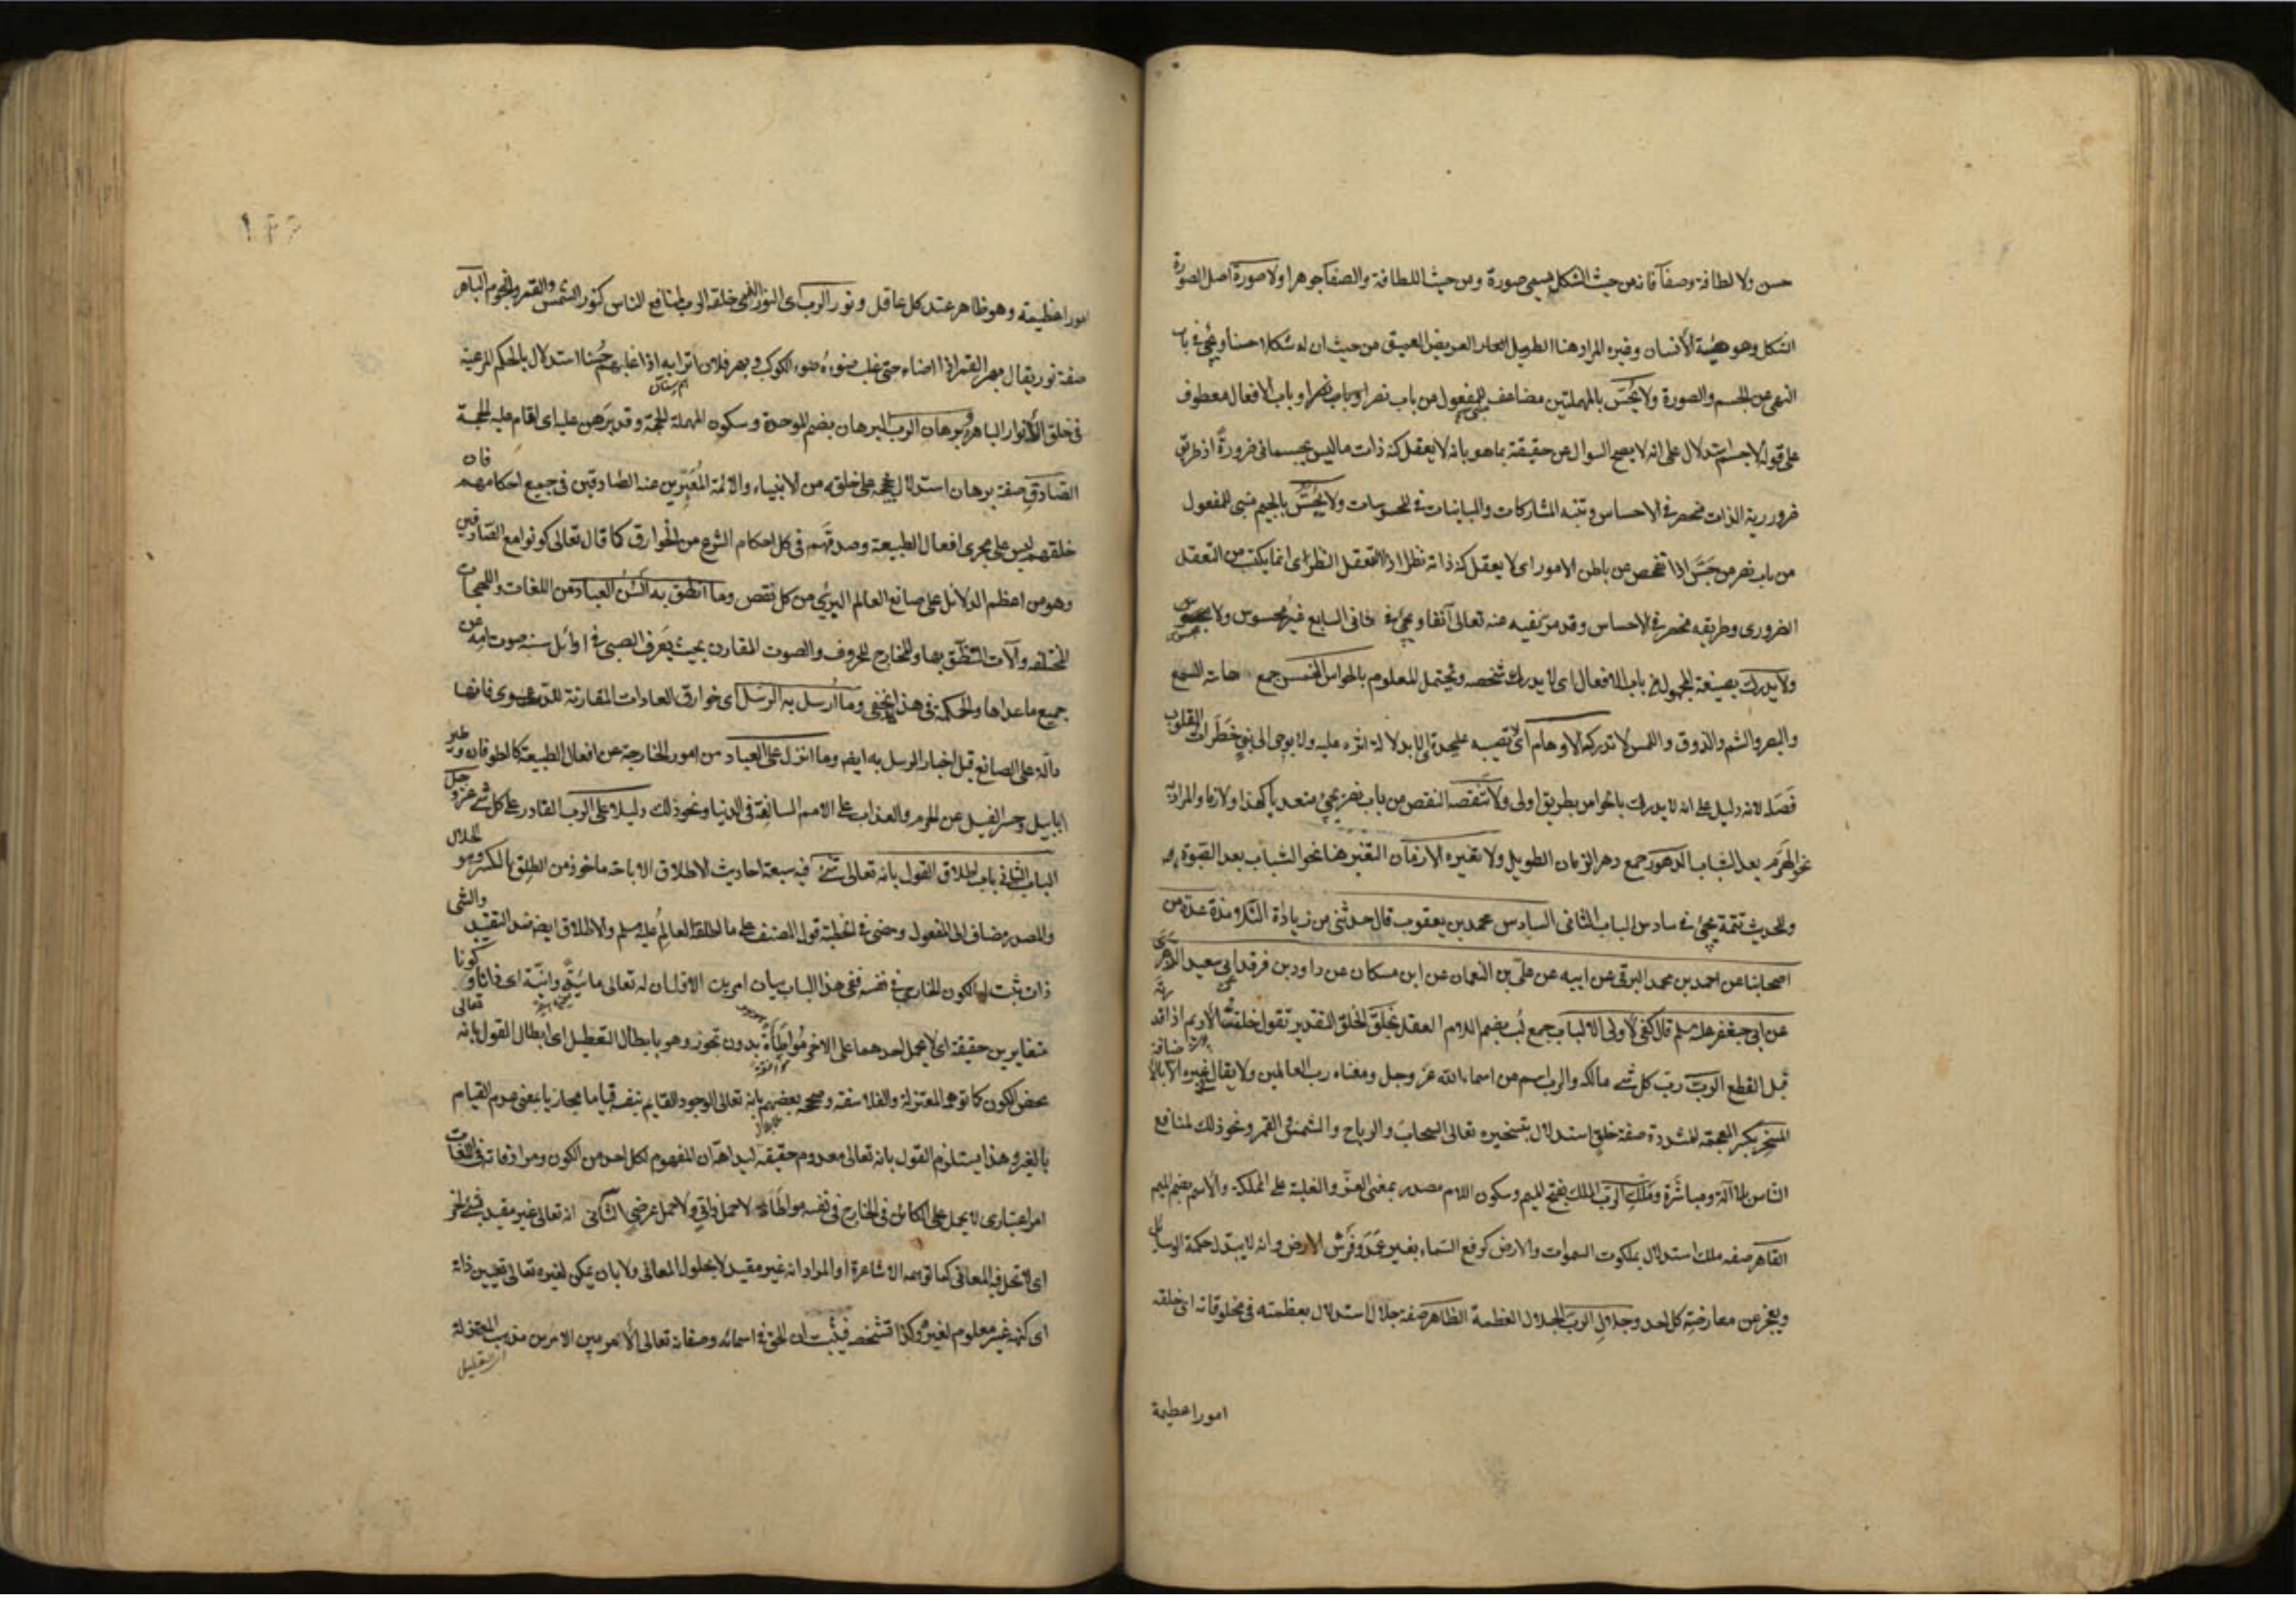 حسن ولا لطافة وصفآ فانه من حيث الشكل يسمى صورة ومن حيث اللطافة والصفآ جوهرا ولا صورة اصل الصورة
الشكل وهو هيئة الأنسان وغيره المراد هنا الطويل العريض العميق من حيث ان له شكلا حسنا ويجئ في باب
النهى عن الجسم والصورة ولا يُحَسّ بالمهملتين مضاعف للمفعول من باب نصر او باب الافعال معطوف
على قوله لا جسم استدلال على انه لا يصح السوال عن حقيقة بما هو بانه لا يعقل كنه ذات ما ليس بجسمانى ضرورةً اذ طريق
ضرورية الذات منحصر في الاحساس وتتبه المشاركات والمباينات في المحسوسات ولا يُجَسّ بالجيم مبنى للمفعول
من باب نصر من جَسَّ اذا تفحص عن باطن الامور اى لا يعقل كنه ذاته نظرا اذ التعقل النظرى انما يكتسب من التعقل
الضرورى وطريقه منحصر في الاحساس وقد مر نفيه عنه تعالى آنفا ويجئ في ثانى السابع غير محسوس ولا مجسوس
ولا يدرك بصيغة المجهول من باب الافعال اى لا يدرك شخصه ويحتمل المعلوم بالحواس الخمس جمع حاسة السمع
والبصر والشم والذوق واللمس لا تدركه الاوهام اى لا تصيبه على حدة اى لا بدلالة اثره عليه ولا بوحى الى نبى خَطَرات القلوب
فَصَلَه لانه دليل على انه لا يدرك بالحواس بطريق اولى ولا تنقصه النقص من باب نصر يجئ متعديا كهذا ولازما والمراد
نحو الهَرَم بعد الشباب الدهور جمع دهر الزمان الطويل ولا تغيره الازمان التغير هنا نحو الشباب بعد الصبوة
وللحديث تتمة يجئ في سادس الباب الثانى السادس محمد بن يعقوب قال حدثنى من زيادة التلامذة عدة من
اصحابنا عن احمد بن محمد البرقى عن ابيه عن على بن النعمان عن ابن مسكان عن داود بن فرقد عن ابى سعيد الزهرى
عن ابى جعفر عليه السلم قال كفى لاولى الالباب جمع لُب بضم اللام العقل بخلق الخلق التقدير تقول خلقت الأديم اذا قدرته
قبل القطع الرب ربّ كل شئ مالكه والرب اسم من اسماء الله عز وجل ومعناه رب العالمين ولا يقال لغيره الا بالاضافة
المسخِّر بكسر المعجمة المشددة صفة خلق استدلال بتسخيره تعالى السحاب والرياح والشمس والقمر ونحو ذلك لمنافع
الناس بلا آلة ومباشَرة ومُلكِ الرب الملك بفتح الميم وسكون اللام مصدر بمعنى العزّ والغلبة على المملكة والأسم بضم الميم
القاهر صفه ملك استدلال بملكوت السموات والارض كرفع السماء بغير عَمَد وفَرْش الارض وانه لا يبتدل حكمة الوسائل
ويعجز عن معارضته كل احد وجلالِ الرب الجلال العظمة الظاهر صفة جلال استدلال بعظمته في مخلوقاته اى خلقه
امورا عظيمة
امورا عظيمة وهو ظاهر عند كل عاقل ونور الرب اى النور الذى خلقه الرب لمنافع الناس كنور الشمس والقمر والنجوم الباهر
صفة نور يقال بهر القمر اذا اضاء حتى غلب ضوءُه ضوء الكوكب وبهر فلان اترابه اذا غلبهم حُسنا استدلال بالحكم المرعية
فى خلق الأنوار الباهرة وبرهان الرب البرهان بضم الموحدة وسكون المهملة الحجة وقد بَرْهن عليه اى اقام عليه الحجة
الصادقِ صفة برهان استدلال بحججه على خلقه من الانبياء والائمة المُعَبِّرين عنه الصّادقين فى جميع احكامهم فان
خلقهم ليس على مجرى افعال الطبيعة وصدقهم فى كل احكام الشرع من الخوارق كما قال تعالى كونوا مع الصّادقين
وهو من اعظم الدلائل على صانع العالم البرئ من كل نقص وما انطق به ألسُن العباد من اللغات واللهجات
المختلفه وآلات النطق بها والمخارج للحروف والصوت المقارن بحيث يَعرف الصبى في اوائل سنه صوت امه عن
جميع ما عداها والحكمة فى هذا لا تخفى وما أُرسل به الرسل اى خوارق العادات المقارنة للدعوى فانها
دالّة على الصانع قبل اخبار الرسل به ايضا وما انزل على العباد من امور الخارجة عن افعال الطبيعة كالطوفان وطير
ابابيل وحبس الفيل عن الحرم والعذاب على الامم السالفة فى الدنيا ونحو ذلك دليلا على الرب القادر على كل شئ عز وجل
الباب الثانى باب اطلاق القول بانه تعالى شئ فيه سبعة احاديث الاطلاق الاباحة ماخوذ من الطِلق بالكسر وهو الحلال
والمصدر مضاف الى المفعول ومضى في الخطبة قول المصنف على ما اطلقه العالِمُ عليه السلم والاطلاق ايضا ضد التقييد والشئ
ذات ثبت له الكون الخارجى في نفسه ففى هذا الباب بيان امرين الاول ان له تعالى مائيّة وانّيّة اى ذاتا وكونا
متغايرين حقيقة اى لا يحمل احدهما على الاخر مُواطَأةً بدون تجوز وهو بابطال التعطيل اى ابطال القول بانه تعالى
محض الكون كما توهمه المعتزلة والفلاسفة وصححه بعضهم بانه تعالى الوجود القايم بنفسه قياما مجازيا بمعنى عدم القيام
بالغير وهذا يستلزم القول بانه تعالى معدوم حقيقة لبداهة ان المفهوم لكل احد من الكون ومرادفاته في اللغات
امر اعتبارى لا يحمل على الكائن فى الخارج فى نفسه مواطأة لا حمل ذاتى ولا حمل عرضى الثانى انه تعالى غير مقيد بشئ آخر
اى لا تحل فيه المعانى كما توهمه الاشاعرة او المراد انه غير مقيد لا بحلول المعانى ولا بان يمكن لغيره تعالى تعيين ذاته
اى كنهه غير معلوم لغيره وكذا تشخصه فيثبت ان الحق في اسمائه وصفاته تعالى الأمر بين الامرين مذهب المعتزلة